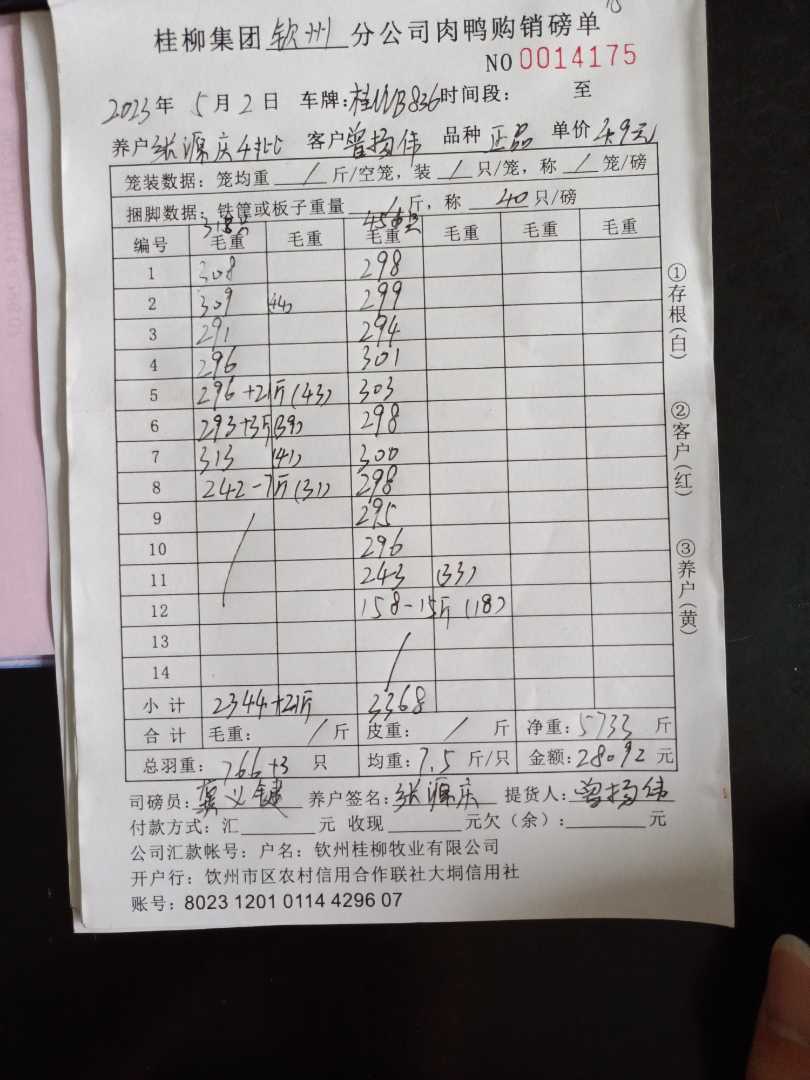 桂柳集团 钦州 分公司肉鸭购销磅单
NO 0014175
2023年 5月2日 车牌: 836 时间段: 至
养户 张源庆4批 客户 曾扬伟 品种 正品 单价 4.9元
笼装数据: 笼均重 / 斤/空笼, 装 / 只/笼, 称 / 笼/磅
捆脚数据: 铁管或板子重量 / 斤, 称 40 只/磅
编号 毛重 毛重 毛重 毛重 毛重 毛重
1 308 298
2 309 (44) 299
3 291 294
4 296 301
5 296+2斤(43) 303
6 293+3斤(39) 298
7 313 (41) 300
8 242-7斤(31) 298
9 / 295
10 296
11 243 (33)
12 158-15斤(18)
13 /
14
小计 2344+2斤 3368
合计 毛重: / 斤 皮重: / 斤 净重: 5733 斤
总羽重: 766+3 只 均重: 7.5 斤/只 金额: 28092 元
司磅员: 龚义健 养户签名: 张源庆 提货人: 曾扬伟
付款方式: 汇 元 收现 元欠(余): 元
公司汇款帐号: 户名: 钦州桂柳牧业有限公司
开户行: 钦州市区农村信用合作联社大垌信用社
账号: 8023 1201 0114 4296 07
①存根(白)
②客户(红)
③养户(黄)